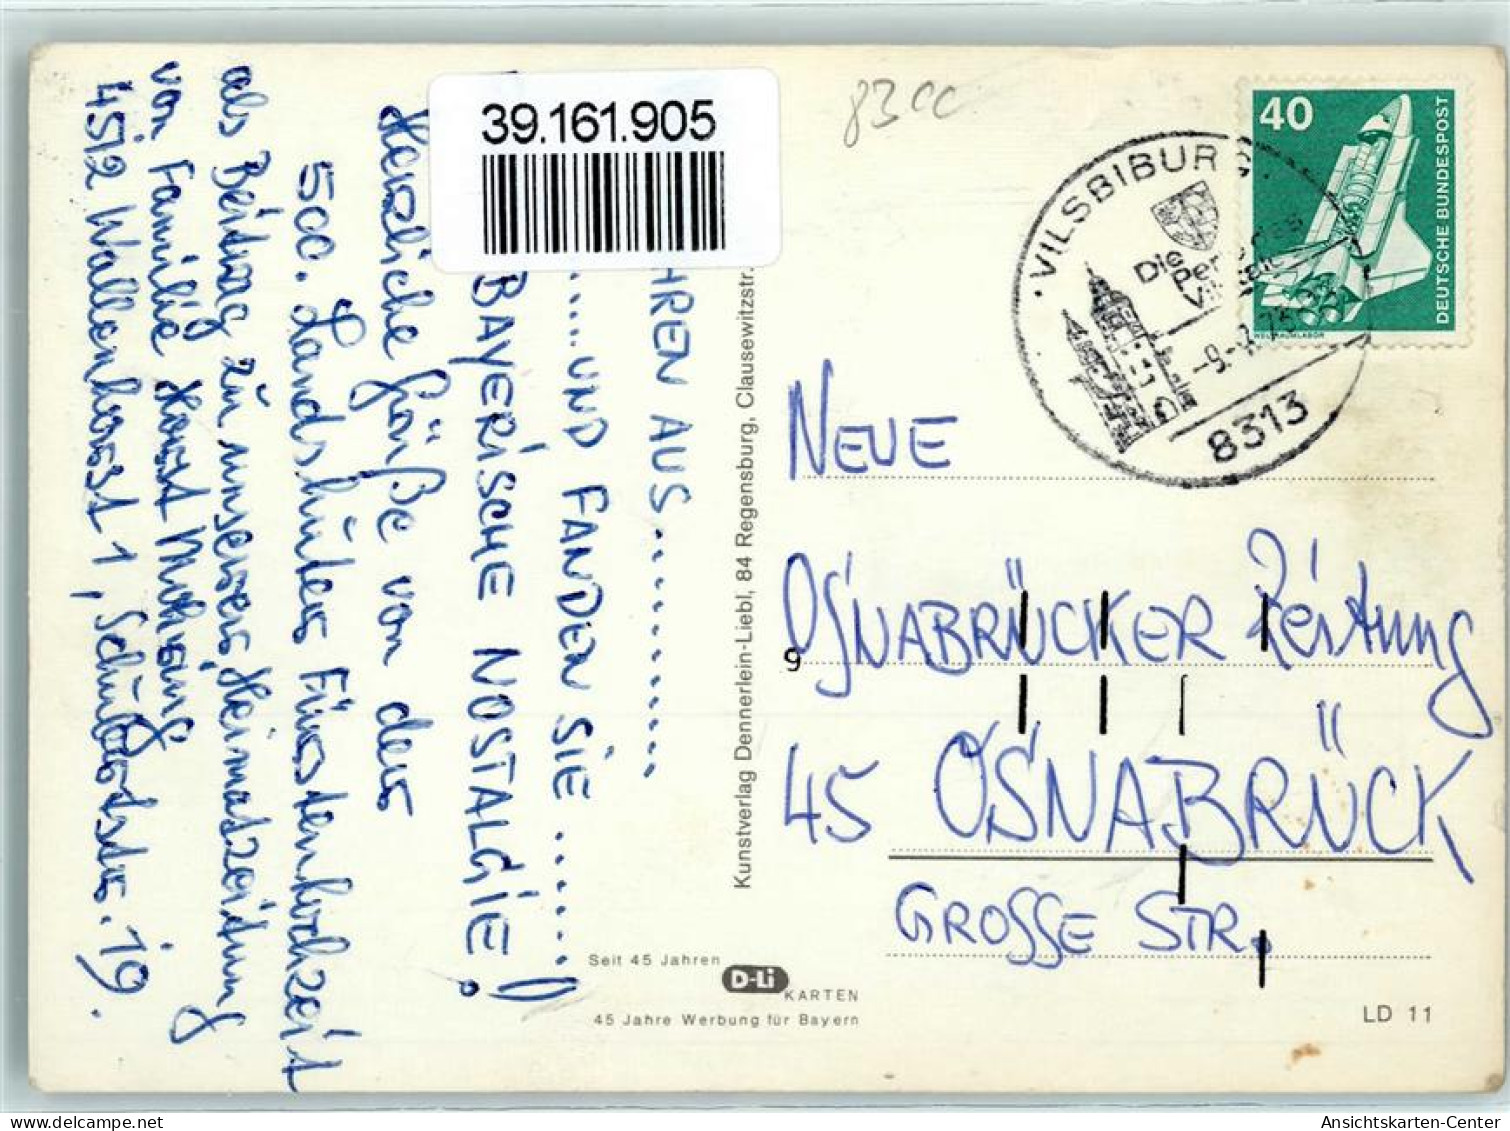 39.161.905
8300
40
DEUTSCHE BUNDESPOST
WELTRAUMLABOR
VILSBIBURG
Die
8313
HREN AUS...........
.....UND FANDEN SIE.......!)
BAYERISCHE NOSTALGIE!
Herzliche Grüße von der
500. Landshuter Fürstenhochzeit
als Beitrag zu unserer Heimatzeitung
von Familie Horst
4512 Wallenhorst 1, Schülerstr. 19.
Kunstverlag Dennerlein-Liebl, 84 Regensburg, Clausewitzstr.
NEUE
OSNABRÜCKER Zeitung
9
45 OSNABRÜCK
GROSSE STR.
Seit 45 Jahren
D-Li
KARTEN
45 Jahre Werbung für Bayern
LD 11
Ansichtskarten-Center